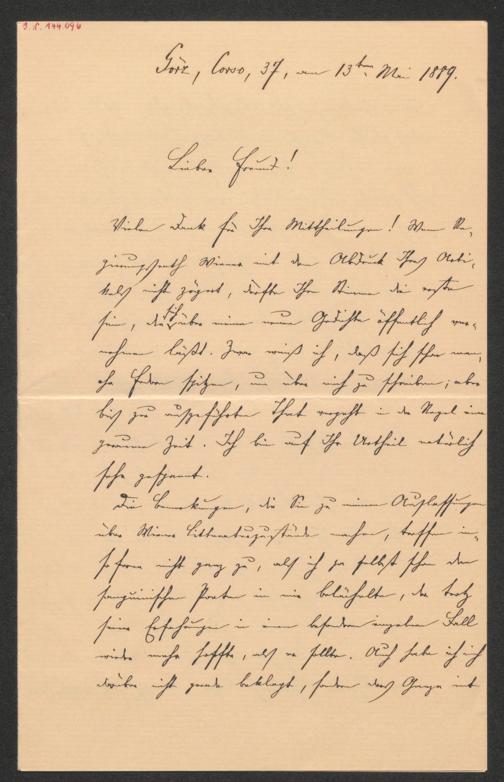 I. N. 144.096
Görz, Corso, 37, am 13ten Mai 1889.
Lieber Freund!
Vielen Dank für Ihre Mittheilungen! Wenn Re-
gierungsrath Winner mit dem Abdruck Ihres Arti-
kels nicht zögert, dürfte Ihre Stimme die erste
sein, die sich über meine neuen Gedichte öffentlich ver-
nehmen läßt. Zwar weiß ich, daß sich schon man-
che Federn spitzen, um über mich zu schreiben; aber
bis zur ausgeführten That vergeht in der Regel eine
geraume Zeit. Ich bin auf Ihr Urtheil natürlich
sehr gespannt.
Die Bemerkungen, die Sie zu meinen Auslassungen
über Wiener Litteraturzustände machen, treffen in-
soferne nicht ganz zu, als ich ja selbst schon den
sanguinischen Poeten in mir belächelte, der trotz
seiner Erfahrungen in einem besonderen Fall
wieder mehr hoffte, als er sollte. Auch habe ich mich
darüber nicht gerade beklagt, sondern das Ganze mit